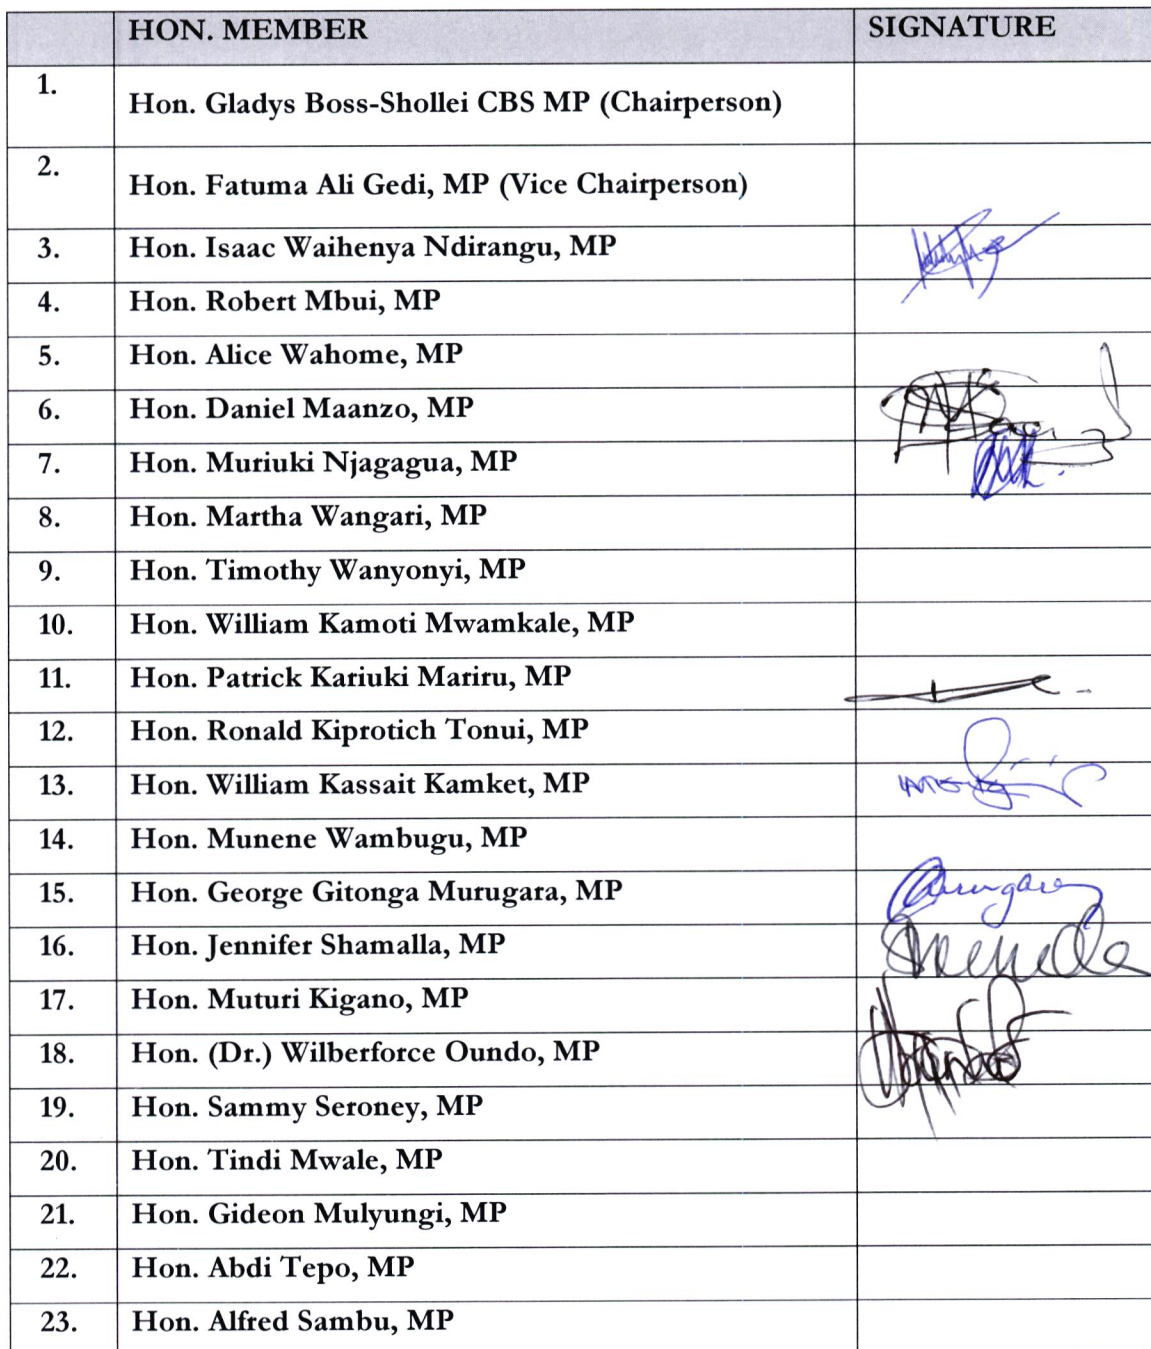 HON. MEMBER SIGNATURE
1. Hon. Gladys Boss-Shollei CBS MP (Chairperson)
2. Hon. Fatuma Ali Gedi, MP (Vice Chairperson)
3. Hon. Isaac Waihenya Ndirangu, MP
4. Hon. Robert Mbui, MP
5. Hon. Alice Wahome, MP
6. Hon. Daniel Maanzo, MP
7. Hon. Muriuki Njagagua, MP
8. Hon. Martha Wangari, MP
9. Hon. Timothy Wanyonyi, MP
10. Hon. William Kamoti Mwamkale, MP
11. Hon. Patrick Kariuki Mariru, MP
12. Hon. Ronald Kiprotich Tonui, MP
13. Hon. William Kassait Kamket, MP
14. Hon. Munene Wambugu, MP
15. Hon. George Gitonga Murugara, MP
16. Hon. Jennifer Shamalla, MP
17. Hon. Muturi Kigano, MP
18. Hon. (Dr.) Wilberforce Oundo, MP
19. Hon. Sammy Seroney, MP
20. Hon. Tindi Mwale, MP
21. Hon. Gideon Mulyungi, MP
22. Hon. Abdi Tepo, MP
23. Hon. Alfred Sambu, MP